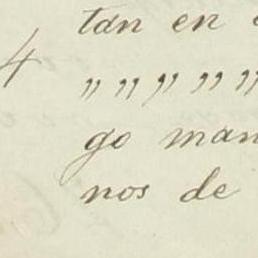 tan en
4 „ „ „ „ „
go man
nos de